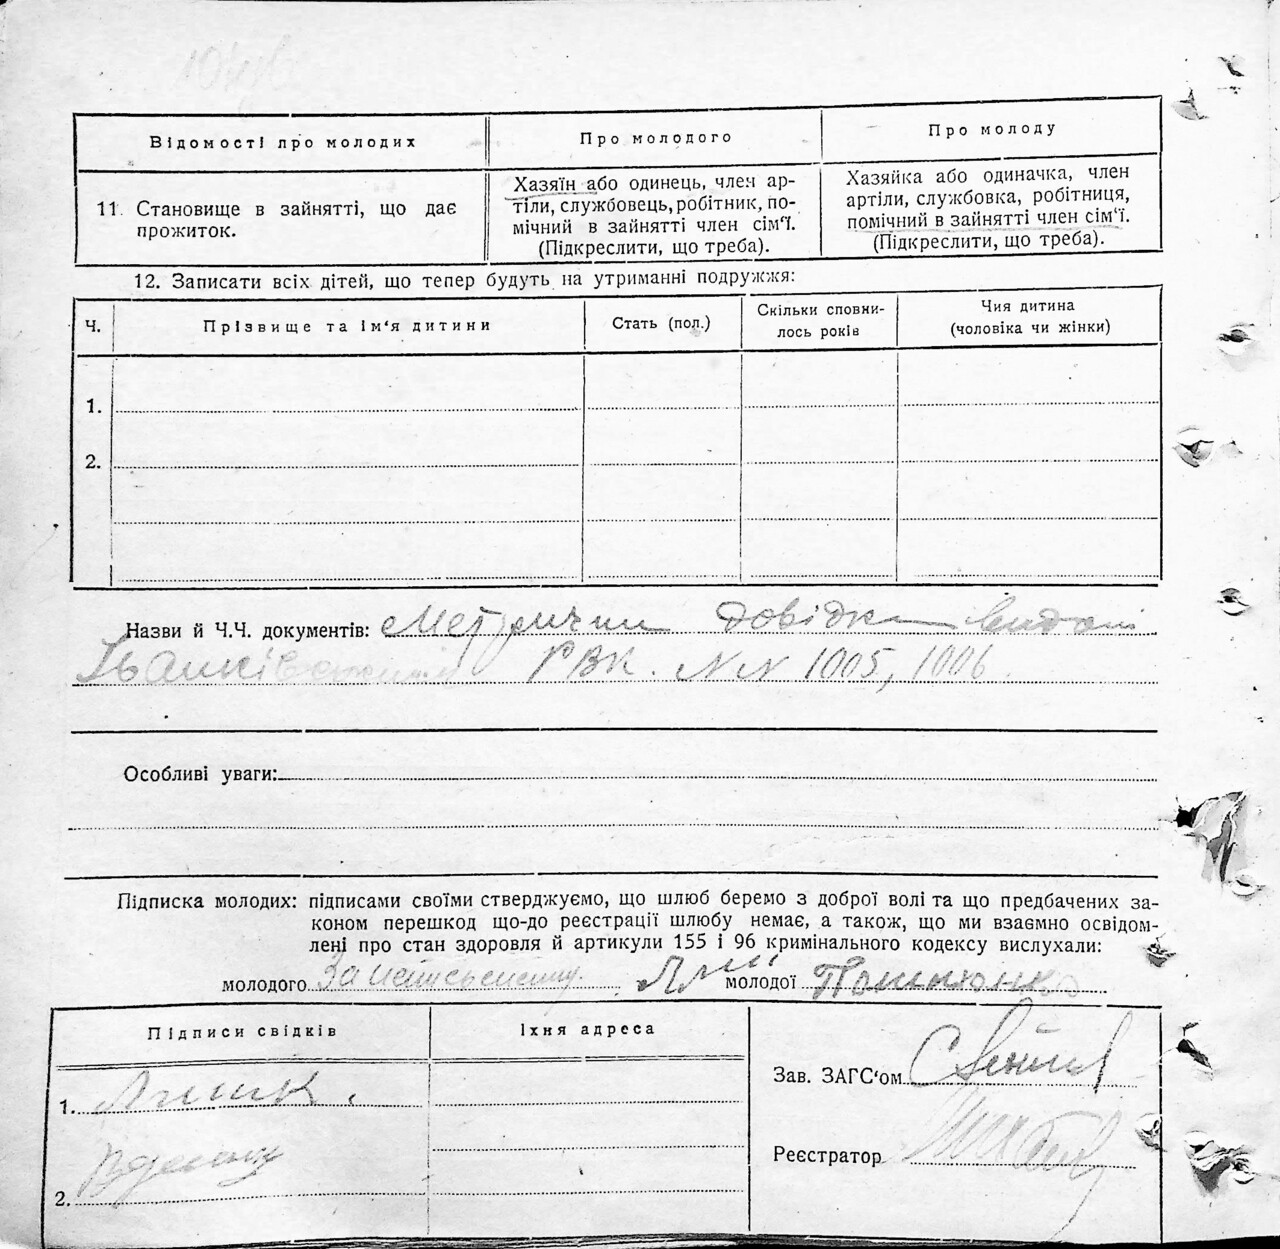 Відомості про молодих
Про молодого
Про молоду
11. Становище в зайнятті, що дає
прожиток.
Хазяїн або одинець, член ар-
тілі, службовець, робітник, по-
мічний в зайнятті член сім'ї.
(Підкреслити, що треба).
Хазяйка або одиначка, член
артіли, службовка, робітниця,
помічний в зайнятті член сім'ї.
(Підкреслити, що треба).
12. Записати всіх дітей, що тепер будуть на утриманні подружжя:
Ч.
Прізвище та ім'я дитини
Стать (пол.)
Скільки сповни-
лось років
Чия дитина
(чоловіка чи жінки)
1.
2.
Назви й Ч.Ч. документів: Метричні довідки видані
РВК. NN 1005, 1006.
Особливі уваги:
Підписка молодих: підписами своїми стверджуємо, що шлюб беремо з доброї волі та що предбачених за-
коном перешкод що-до реєстрації шлюбу немає, а також, що ми взаємно освідом-
лені про стан здоровля й артикули 155 і 96 кримінального кодексу вислухали:
молодого
молодої
Підписи свідків
Їхня адреса
1.
2.
Зав. ЗАГС'ом
Реєстратор